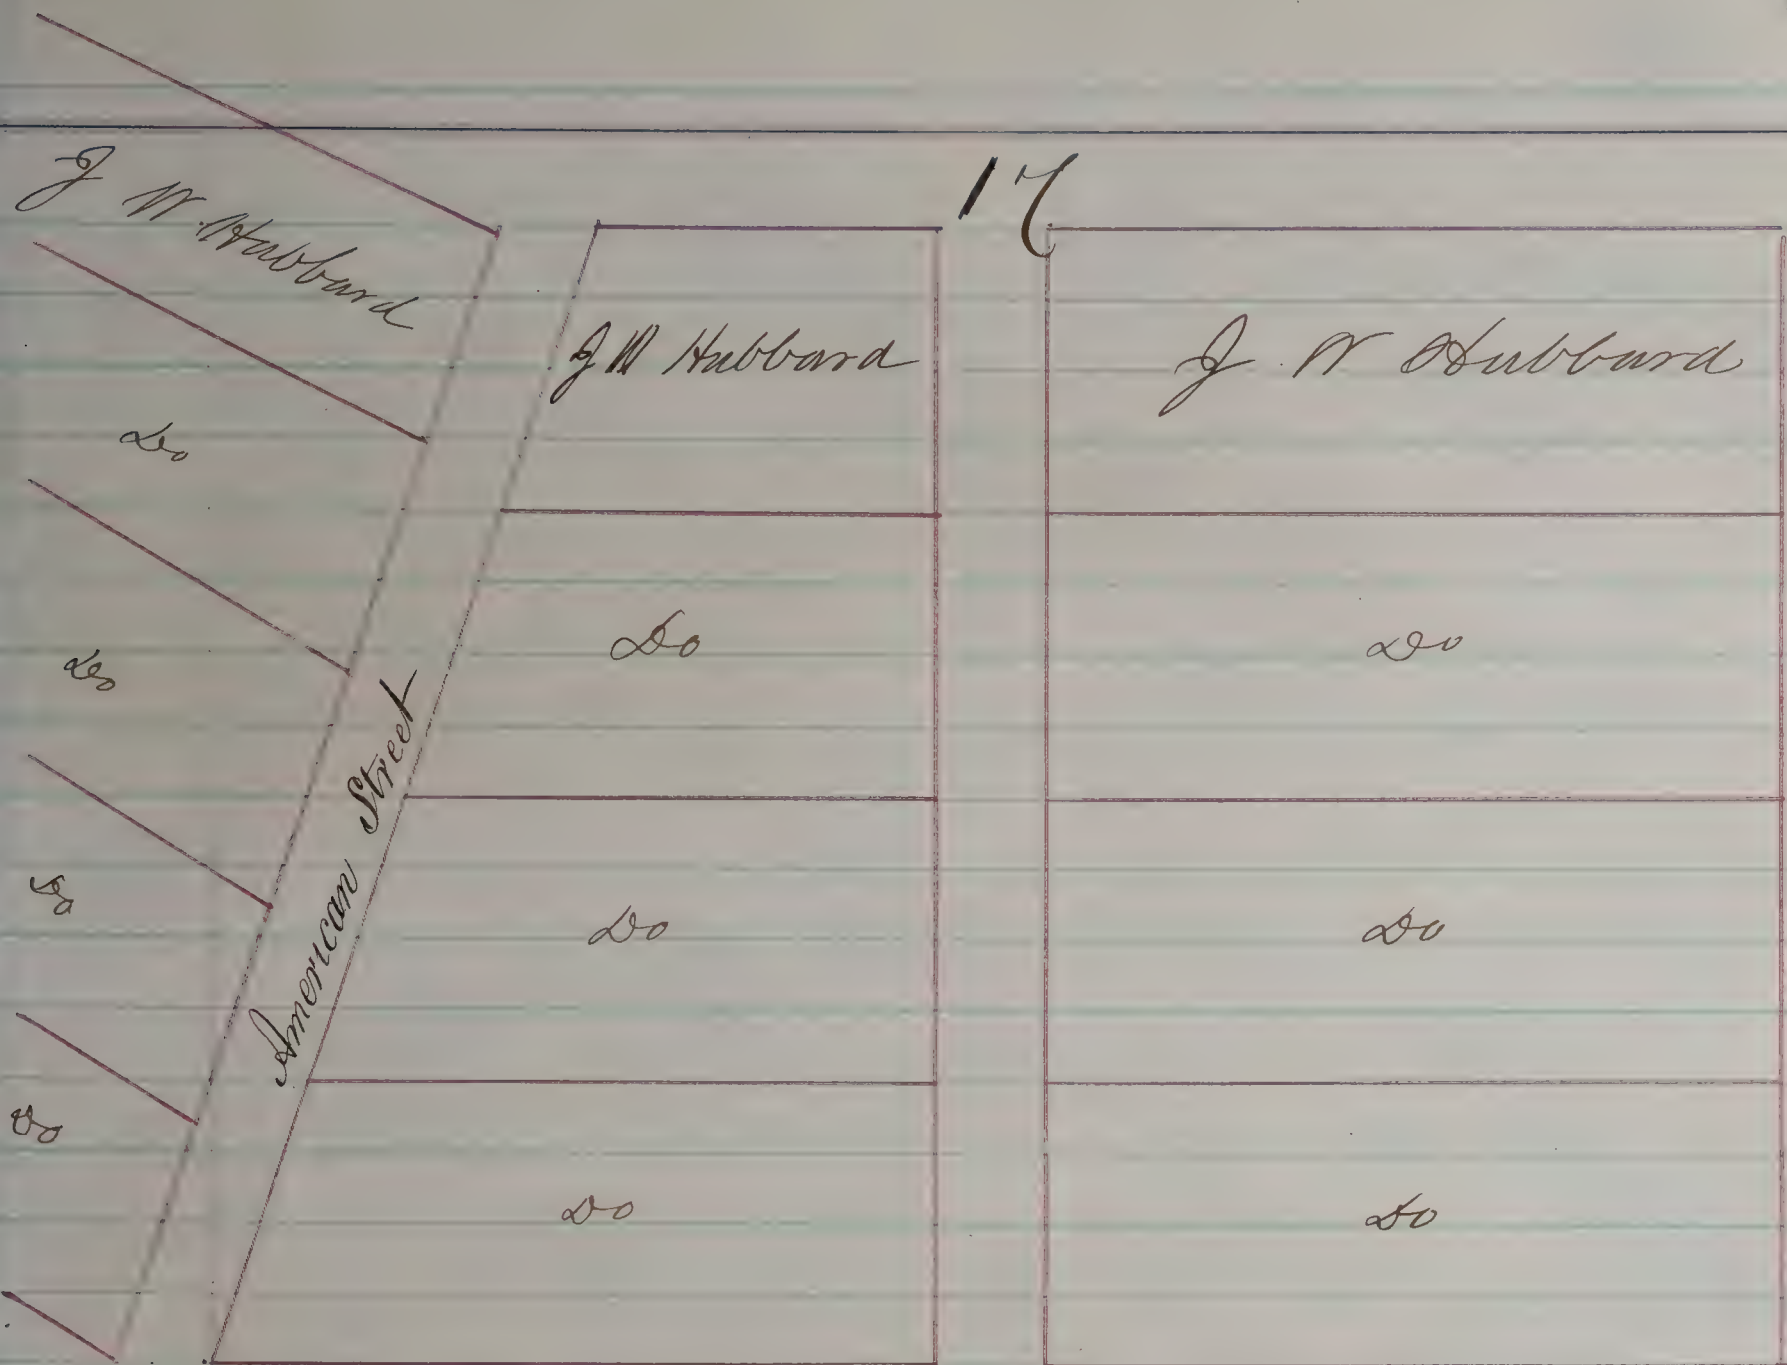 17
J W. Hubbard
Do
Do
Do
Do
American Street
J W Hubbard
Do
Do
Do
J W Hubbard
Do
Do
Do